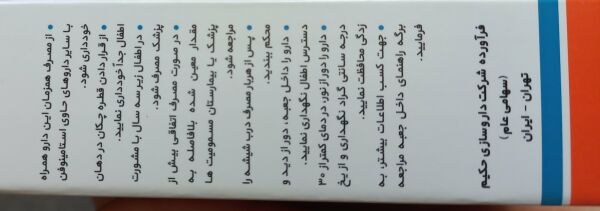 • از مصرف همزمان این دارو همراه
با سایر داروهای حاوی استامینوفن
خودداری شود.
• از قرار دادن قطره چکان در دهان
اطفال جداً خودداری نمایید.
• در اطفال زیر سه سال با مشورت
پزشک مصرف شود.
• در صورت مصرف اتفاقی بیش از
مقدار معین شده بلافاصله به
پزشک یا بیمارستان مسمومیت ها
مراجعه شود.
• پس از هر بار مصرف درب شیشه را
محکم ببندید.
• دارو را داخل جعبه، دور از دید و
دسترس اطفال نگهداری نمایید.
• دارو را دور از نور، در دمای کمتر از ۳۰
درجه سانتی گراد نگهداری و از یخ
زدگی محافظت نمایید.
• جهت کسب اطلاعات بیشتر، به
برگه راهنمای داخل جعبه مراجعه
فرمایید.
فرآورده شرکت داروسازی حکیم
(سهامی عام)
تهران - ایران